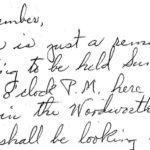 ember,
is just a remi
ing to be held Sun
8 o'clock P.M. here
in the Wordsworth
shall be looking